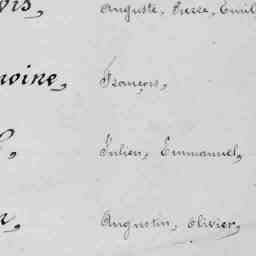 Auguste, Pierre, Emil
François,
Julien, Emmanuel,
Augustin, Olivier,